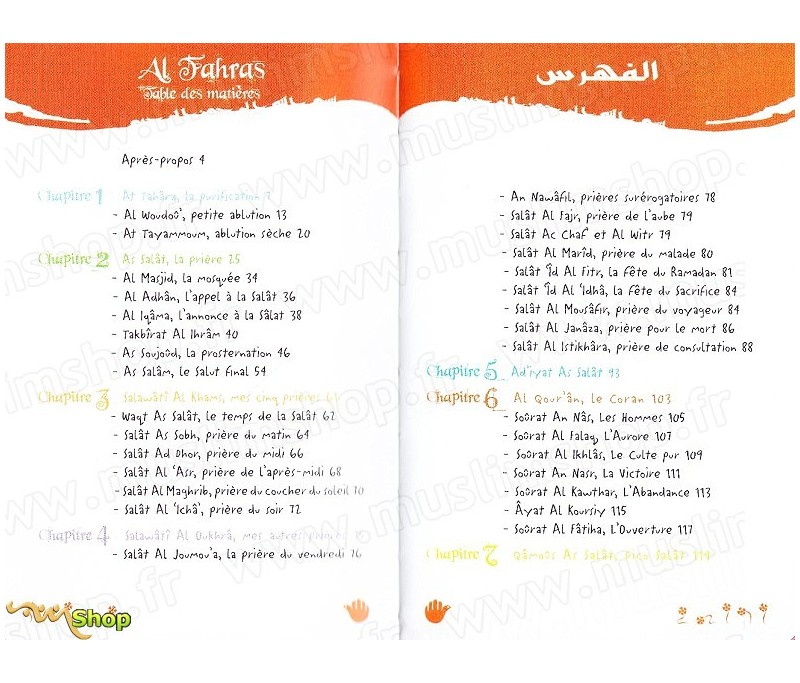 Al Fahras
Table des matières
Après-propos 4
Chapitre 1 At Tahâra, la purification 7
- Al Woudoû', petite ablution 13
- At Tayammoum, ablution sèche 20
Chapitre 2 As Salât, la prière 25
- Al Masjid, la mosquée 34
- Al Adhân, l'appel à la Salât 36
- Al Iqâma, l'annonce à la Sâlat 38
- Takbîrat Al Ihrâm 40
- As Soujoûd, la prosternation 46
- As Salâm, le Salut final 54
Chapitre 3 Salawâti Al Khams, mes cinq prières 61
- Waqt As Salât, le temps de la Salât 62
- Salât As Sobh, prière du matin 64
- Salât Ad Dhor, prière du midi 66
- Salât Al 'Asr, prière de l'après-midi 68
- Salât Al Maghrib, prière du coucher du soleil 70
- Salât Al 'Ichâ', prière du soir 72
Chapitre 4 Salawâtî Al Oukhrâ, mes autres
- Salât Al Joumou'a, la prière du vendredi 76
Shop
الفهرس
- An Nawâfil, prières surérogatoires 78
- Salât Al Fajr, prière de l'aube 79
- Salât Ac Chaf' et Al Witr 79
- Salât Al Marîd, prière du malade 80
- Salât Îd Al Fitr, la fête du Ramadan 81
- Salât Îd Al 'Idhâ, la fête du Sacrifice 84
- Salât Al Mousâfir, prière du voyageur 84
- Salât Al Janâza, prière pour le mort 86
- Salât Al Istikhâra, prière de consultation 88
Chapitre 5 Ad'iyat As Salât 93
Chapitre 6 Al Qour'ân, le Coran 103
- Soûrat An Nâs, Les Hommes 105
- Soûrat Al Falaq, L'Aurore 107
- Soûrat Al Ikhlâs, Le Culte pur 109
- Soûrat An Nasr, La Victoire 111
- Soûrat Al Kawthar, L'Abandance 113
- Âyat Al Koursiy 115
- Soûrat Al Fâtiha, L'Ouverture 117
Chapitre 7 Qâmoûs As Salât, Dico Salât 119
www.muslimshop.fr